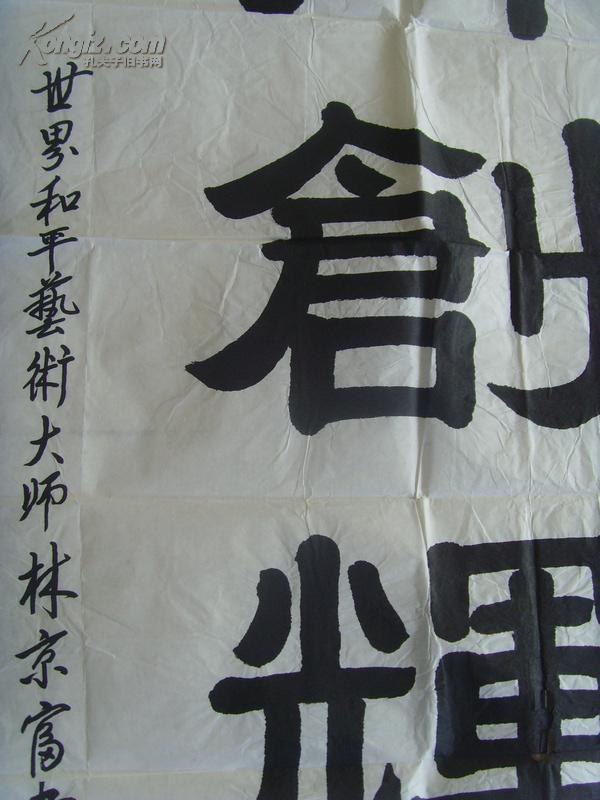 創
輝
世界和平藝術大师林京富
Kongfz.com
孔夫子旧书网